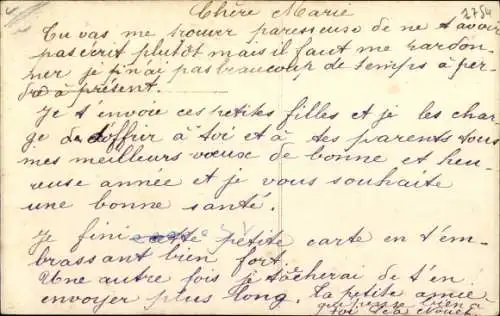 Chère Marie 2754
Tu vas me trouver paresseuse de ne t'avoir
pas écrit plutôt mais il faut me pardon-
ner je n'ai pas beaucoup de temps à per-
dre à présent.
Je t'envoie ces petites filles et je les char-
ge de t'offrir à toi et à tes parents tous
mes meilleurs vœux de bonne et heu-
reuse année et je vous souhaite
une bonne santé.
Je fini cette petite carte en t'em-
brassant bien fort.
Une autre fois je tâcherai de t'en
envoyer plus long. Ta petite amie
qui pense bien à
toi Léa